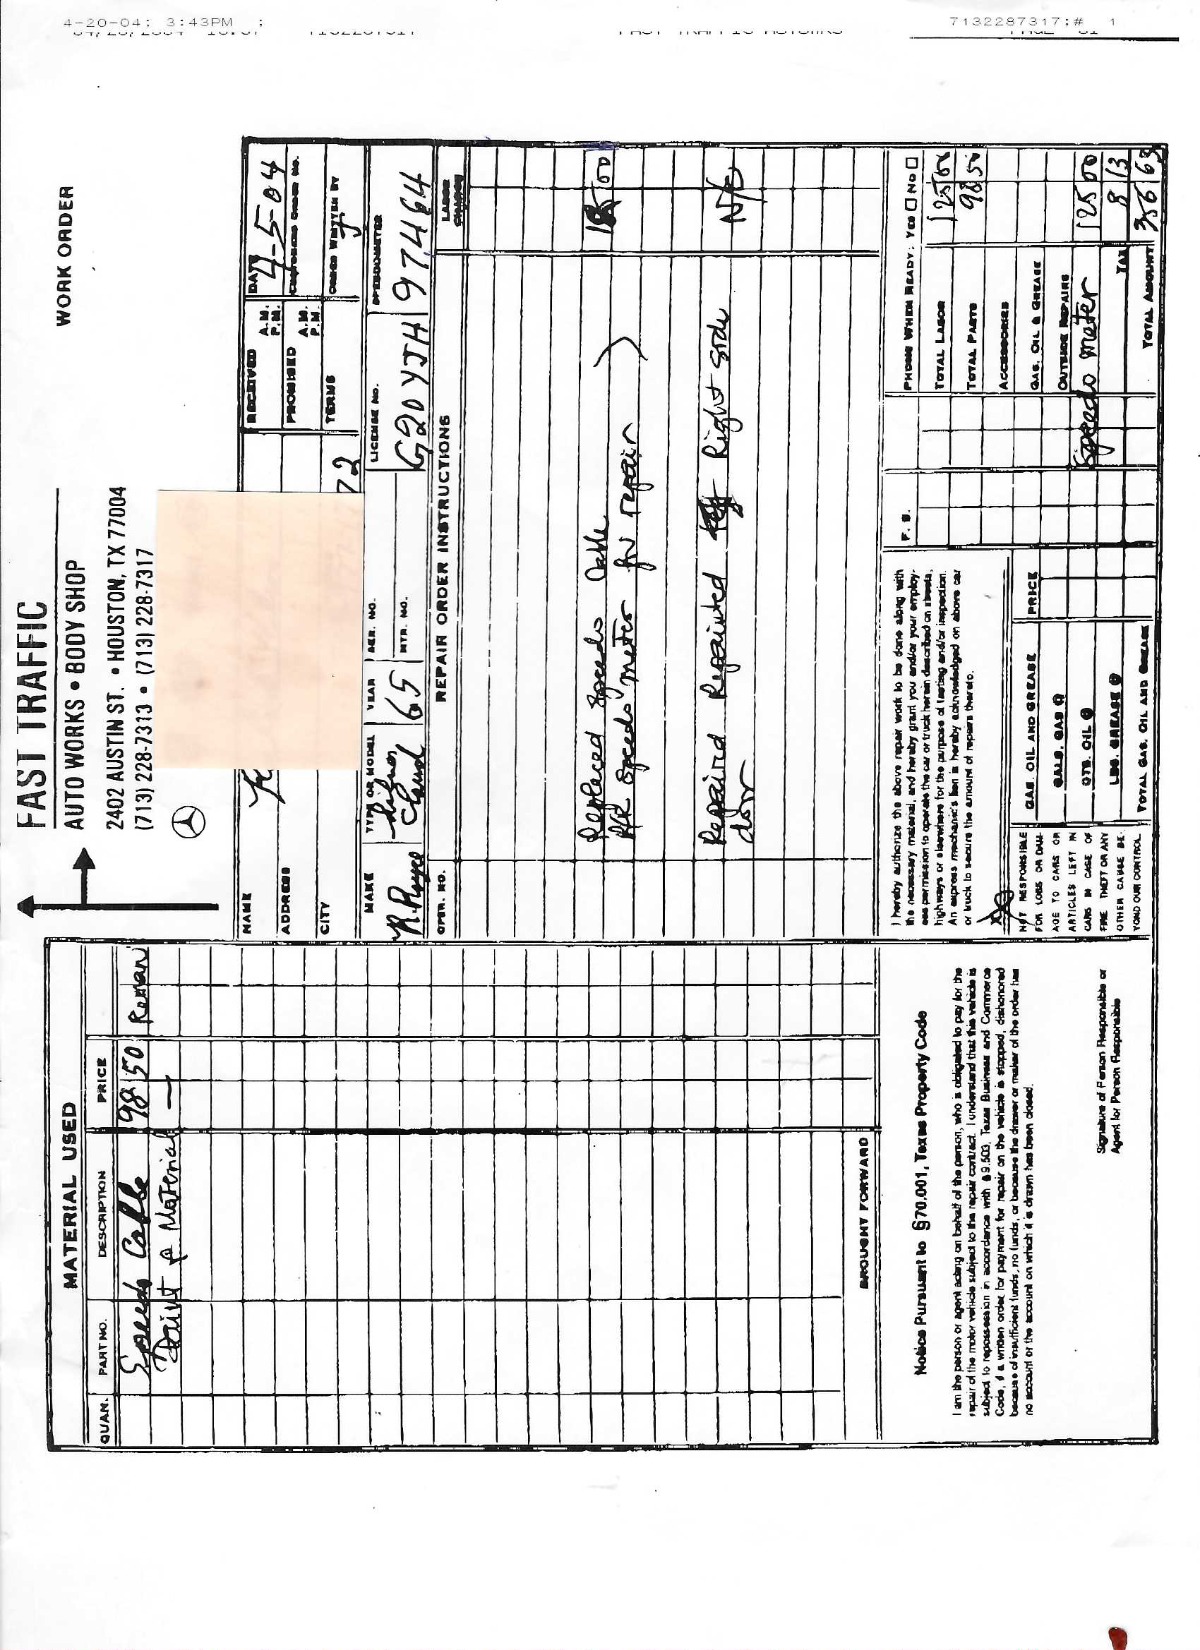 4-20-04; 3:43PM ;
7132287317;# 1
FAST TRAFFIC
AUTO WORKS • BODY SHOP
2402 AUSTIN ST. • HOUSTON, TX 77004
(713) 228-7313 • (713) 228-7317
WORK ORDER
MATERIAL USED
QUAN. PART NO. DESCRIPTION PRICE
Speedo Cable 98 50 Reman
Paint & Material —
BROUGHT FORWARD
Notice Pursuant to §70.001, Texas Property Code
I am the person or agent acting on behalf of the person, who is obligated to pay for the
repair of the motor vehicle subject to the repair contract. I understand that this vehicle is
subject to repossession in accordance with §9.503, Texas Business and Commerce
Code, if a written order for payment for repair on the vehicle is stopped, dishonored
because of insufficient funds, no funds, or because the drawer or maker of the order has
no account or the account on which it is drawn has been closed.
Signature of Person Responsible or
Agent for Person Responsible
NAME
ADDRESS
CITY
RECEIVED A.M. P.M.
DATE 4-5-04
PROMISED A.M. P.M.
CUSTOMERS ORDER NO.
TERMS
ORDER WRITTEN BY
72
MAKE R. Royce
TYPE OR MODEL Cloud
YEAR 65
SER. NO.
MTR. NO.
LICENSE NO. G20YJH
SPEEDOMETER 97464
OPER. NO. REPAIR ORDER INSTRUCTIONS LABOR CHARGE
Replaced Speedo Cable
R/R Speedo meter for repair
Repaird Repainted Right side N/C
door
I hereby authorize the above repair work to be done along with
the necessary material, and hereby grant you and/or your employ-
ees permission to operate the car or truck herein described on streets,
highways or elsewhere for the purpose of testing and/or inspection.
An express mechanic's lien is hereby acknowledged on above car
or truck to secure the amount of repairs thereto.
X
NOT RESPONSIBLE
FOR LOSS OR DAM-
AGE TO CARS OR
ARTICLES LEFT IN
CARS IN CASE OF
FIRE THEFT OR ANY
OTHER CAUSE BE-
YOND OUR CONTROL.
GAS, OIL AND GREASE PRICE
GALS. GAS @
QTS. OIL @
LBS. GREASE @
TOTAL GAS, OIL AND GREASE
F. S.
PHONE WHEN READY: YES NO
TOTAL LABOR 125 00
TOTAL PARTS 98 50
ACCESSORIES
GAS, OIL & GREASE
OUTSIDE REPAIRS
Speedo meter 125 00
TAX 8 13
TOTAL AMOUNT 356 63